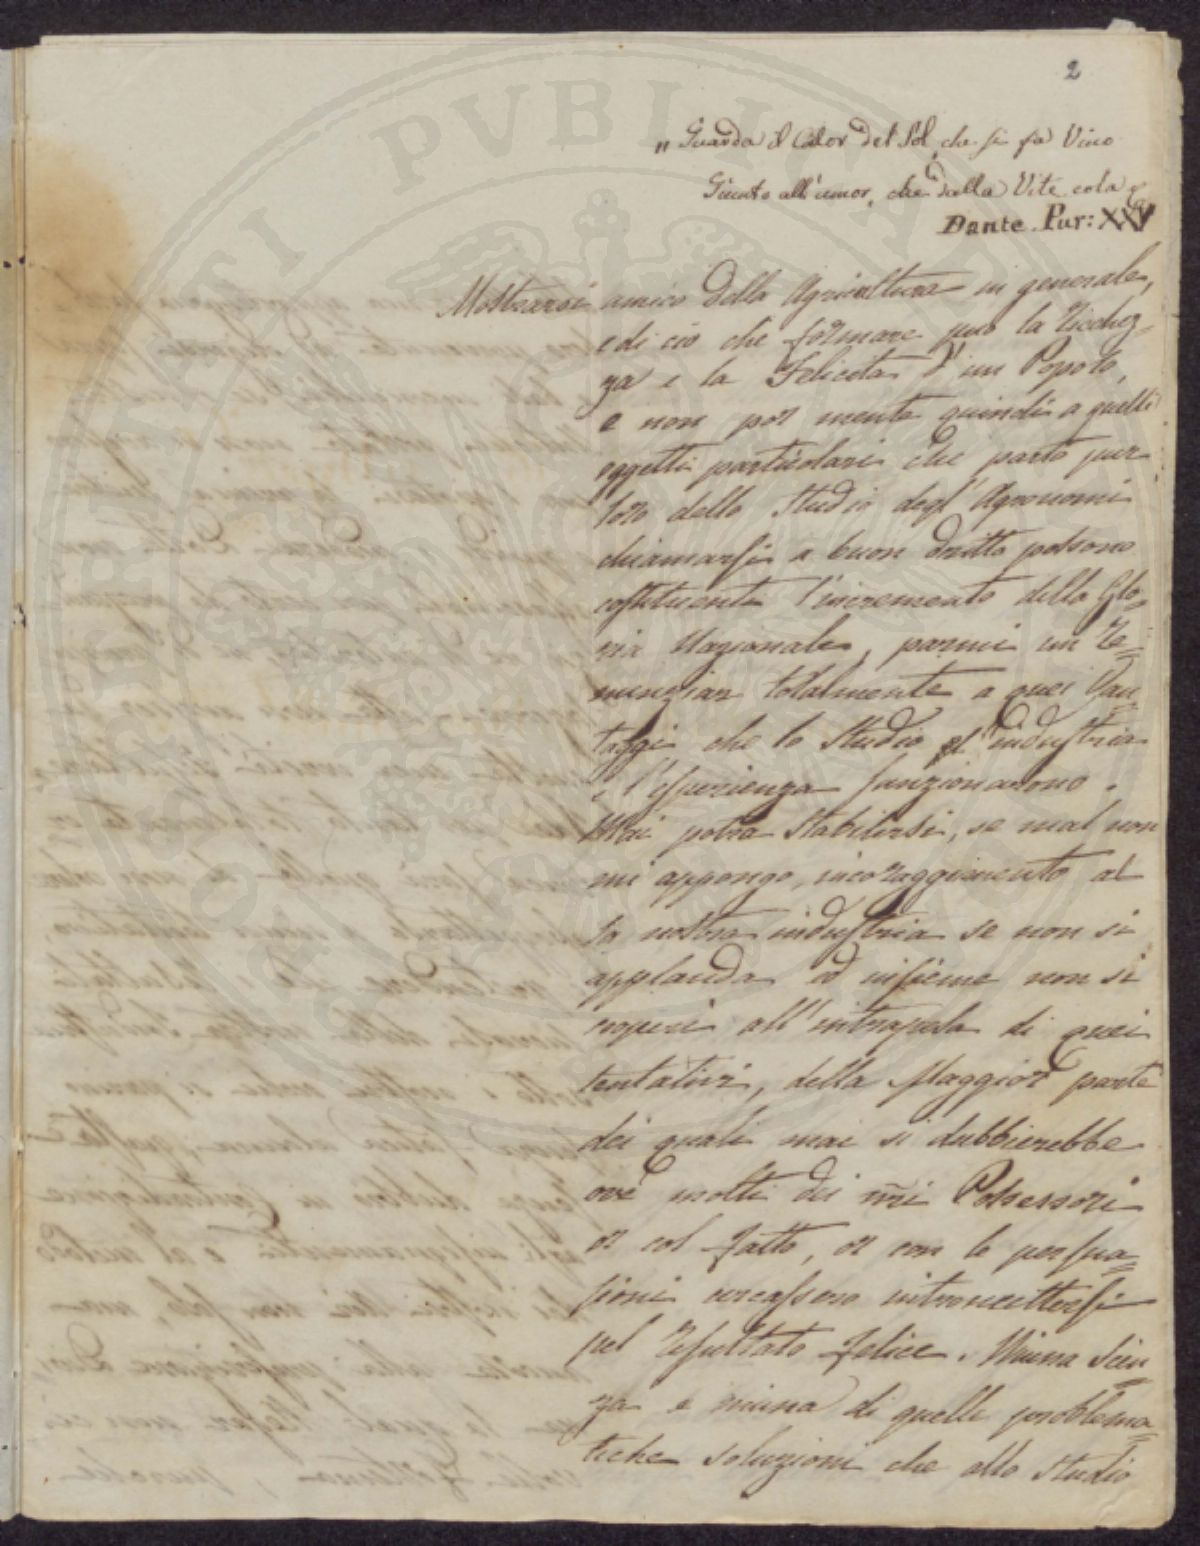 2
" Guarda il Calor del Sol, che si fa Vino
Giunto all'umor, che dalla Vite cola
Dante. Pur: XXV
Mostrarsi amico della Agricoltura in generale,
e di ciò che formare può la Ricchez=
za e la Felicità d'un Popolo,
e non por mente quindi a quelli
oggetti particolari che parto pur
loro dello studio degl'Agronomi
chiamarsi a buon dritto possono
costituenti l'incremento della Glo=
ria Nazionale, parmi un Re=
nunziar totalmente a quei Van=
taggi che lo Studio l'industria
e l'esperienza sanzionarono.
Mai potrà stabilirsi, se mal non
mi appongo, incoraggimento al
la nostra industria se non si
applauda ed insieme non si
cooperi all'intrapresa di quei
tentativi, della Maggior parte
dei quali mai si dubbierebbe
ove molti dei nri Possessori
or col fatto, or con le persua=
sioni cercassero intromettersi
pel resultato felice. Niuna Scien=
za e niuna di quelle problema=
tiche soluzioni che allo studio